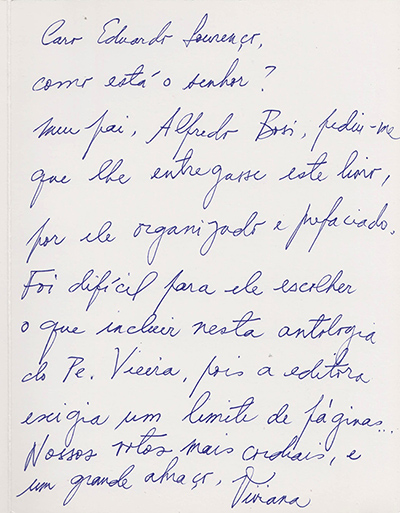 Caro Eduardo Lourenço,
como está o senhor?
Meu pai, Alfredo Bosi, pediu-me
que lhe entregasse este livro,
por ele organizado e prefaciado.
Foi difícil para ele escolher
o que incluir nesta antologia
do Pe. Vieira, pois a editora
exigia um limite de páginas...
Nossos votos mais cordiais, e
um grande abraço, Viviana